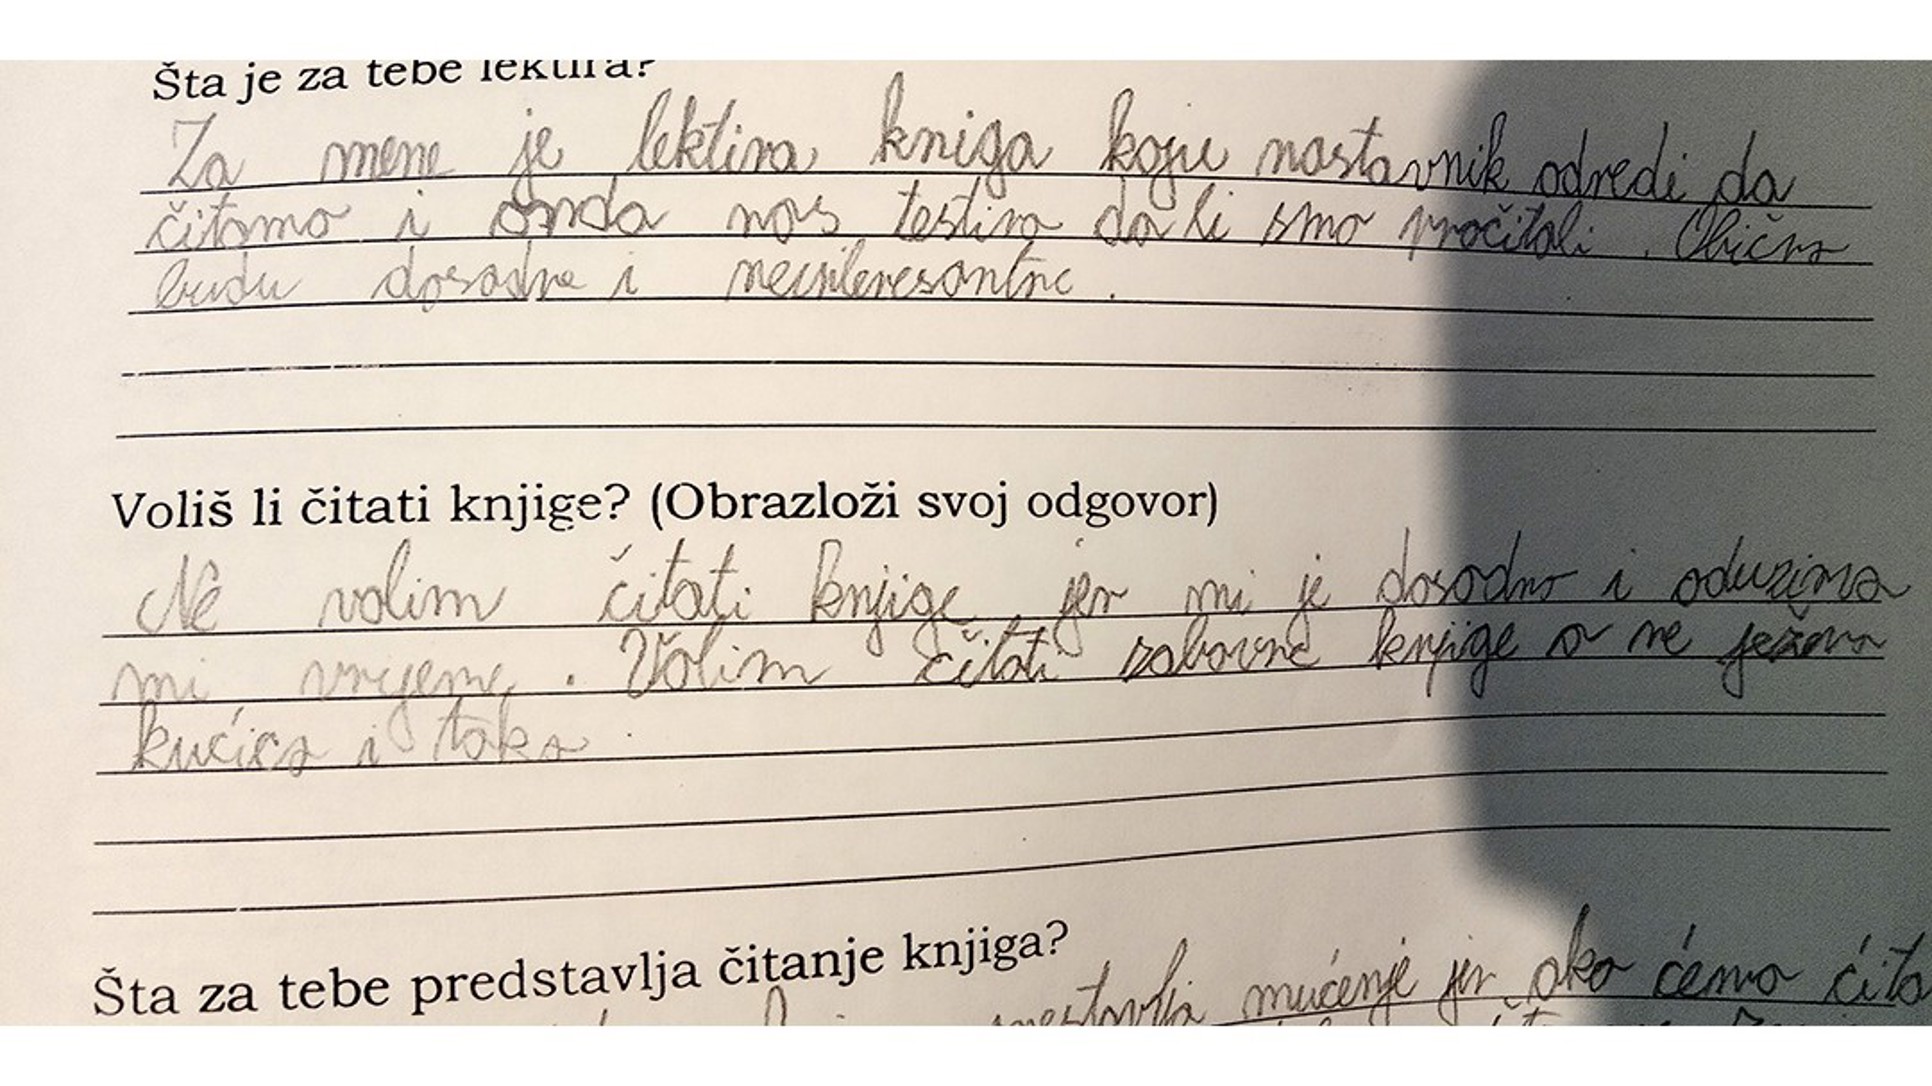 Šta je za tebe lektira?
Za mene je lektira kniga koju nastavnik odredi da
čitamo i onda nas testira da li smo pročitali. Obično
budu dosadne i neinteresantne.
Voliš li čitati knjige? (Obrazloži svoj odgovor)
Ne volim čitati knjige jer mi je dosadno i oduzima
mi vrijeme. Volim čitati zabavne knjige a ne ježeva
kućica i tako.
Šta za tebe predstavlja čitanje knjiga?
mučenje jer ako ćemo čita